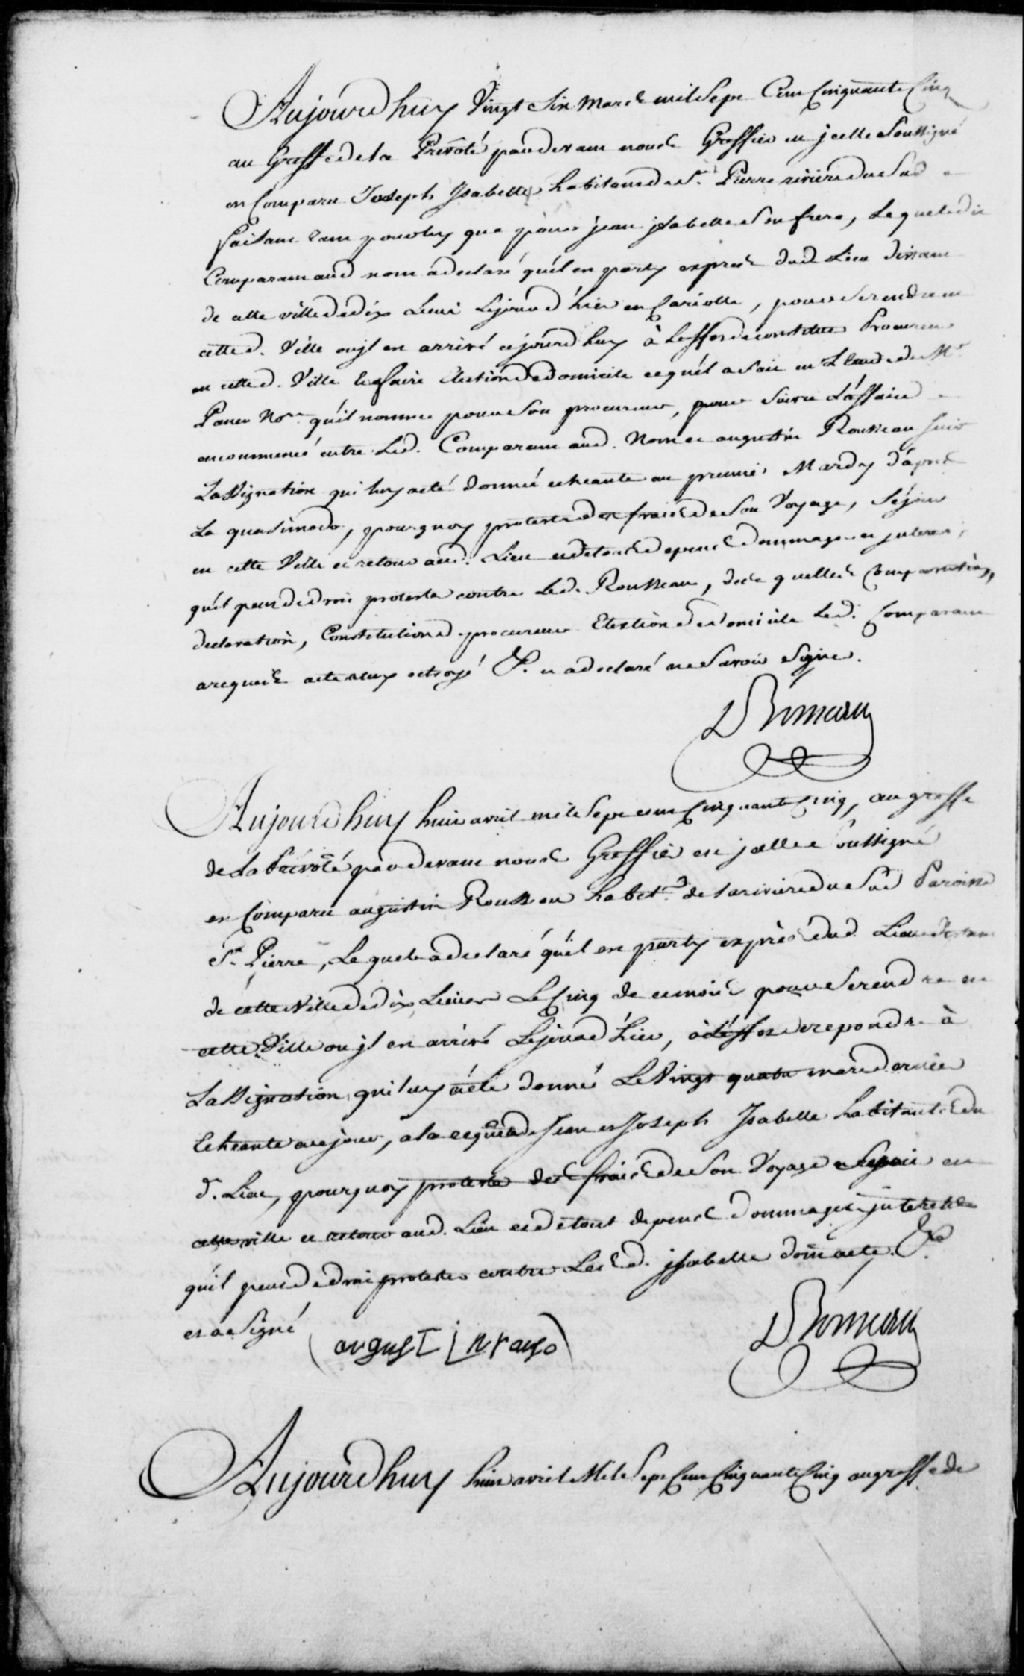 Aujourd'huy Vingt Six Mars mil Sept Cent Cinquante Cinq
au Greffe de la Prévoté pardevant nous Greffier en jcelle Soussigné
en Comparu Joseph Isabelle habitant de St. Pierre riviere du Sud
faisant tant pour luy que pour jean jsabelle Son frere, Lequel dit
Comparant aud nom a declaré qu'il en party exprés dud Lieu distant
de cette ville de dix Lieues Le jour d'hier en Cariolle, pour Se rendre en
cette d. Ville ou jl en arrivé cejourd'huy à Leffet de constituer Procureur
en cette d. Ville et faire Election de domicile ce qu'il a fait en L'Etude de Me
Panet Nore. qu'il nomme pour Son procureur, pour Suivre L'affaire
encommencé entre Led. Comparant aud. Nom et augustin Rousseau Suiv
L'assignation qui luy a eté donnée echeante au premier Mardy d'aprés
La quasimodo, pourquoy proteste des fraix de Son Voyage, Séjour
en cette Ville et retour aud. Lieu et de tous depens dommages et jnterests
qu'il peut de droit protester contre Led. Rousseau, des quelles Comparution,
declaration, Constitution de procureur Election de domicile Led. Comparant
a requis acte a luy octroyé &a. et a declaré ne Savoir Signer.
Aujourd'huy huit avril mil Sept cent Cinquante Cinq, au greffe
de La Prévôté pardevant nous Greffier en jcelle Soussigné
en Comparu augustin Rousseau habit.t de la riviere du Sud Paroisse
St. Pierre, Lequel a declaré qu'il en party exprès dud. Lieu distant
de cette Ville de dix Lieues Le Cinq de ce mois pour Se rendre en
cette Ville ou jl en arrivé Le jour d'hier, à L'effet de repondre à
L'assignation qui luy a été donné Le Vingt quatre mars dernier
Echeante ce jour, a la requête de Jean et Joseph Isabelle habitants du
d. Lieu, pourquoy proteste des fraix de Son Voyage Sejour en
cette ville et retour aud. Lieu et de tous depens dommages jnterests
qu'il peut de droit protester contre Les d. jsabelle dont acte. &a
et a Signé
Aujourd'huy huit avril Mil Sept Cent Cinquante Cinq au greffe de